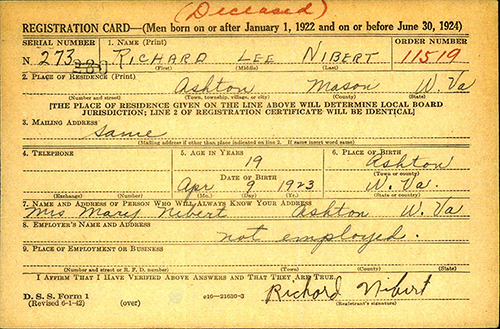 (Deceased)
REGISTRATION CARD—(Men born on or after January 1, 1922 and on or before June 30, 1924)
SERIAL NUMBER 1. NAME (Print) ORDER NUMBER
N. 273 RICHARD LEE NIBERT 11519
(First) (Middle) (Last)
2. PLACE OF RESIDENCE (Print)
Ashton Mason W. Va
(Number and street) (Town, township, village, or city) (County) (State)
[THE PLACE OF RESIDENCE GIVEN ON THE LINE ABOVE WILL DETERMINE LOCAL BOARD
JURISDICTION; LINE 2 OF REGISTRATION CERTIFICATE WILL BE IDENTICAL]
3. MAILING ADDRESS
Same
[Mailing address if other than place indicated on line 2. If same insert word same]
4. TELEPHONE 5. AGE IN YEARS 6. PLACE OF BIRTH
19 Ashton
DATE OF BIRTH (Town or county)
Apr 9 1923 W. Va.
(Exchange) (Number) (Mo.) (Day) (Yr.) (State or country)
7. NAME AND ADDRESS OF PERSON WHO WILL ALWAYS KNOW YOUR ADDRESS
Mrs Mary Nibert Ashton W. Va
8. EMPLOYER'S NAME AND ADDRESS
not employed.
9. PLACE OF EMPLOYMENT OR BUSINESS
(Number and street or R. F. D. number) (Town) (County) (State)
I AFFIRM THAT I HAVE VERIFIED ABOVE ANSWERS AND THAT THEY ARE TRUE.
D. S. S. Form 1 16—21630-3 Richard Nibert
(Revised 6-1-42) (over) (Registrant's signature)